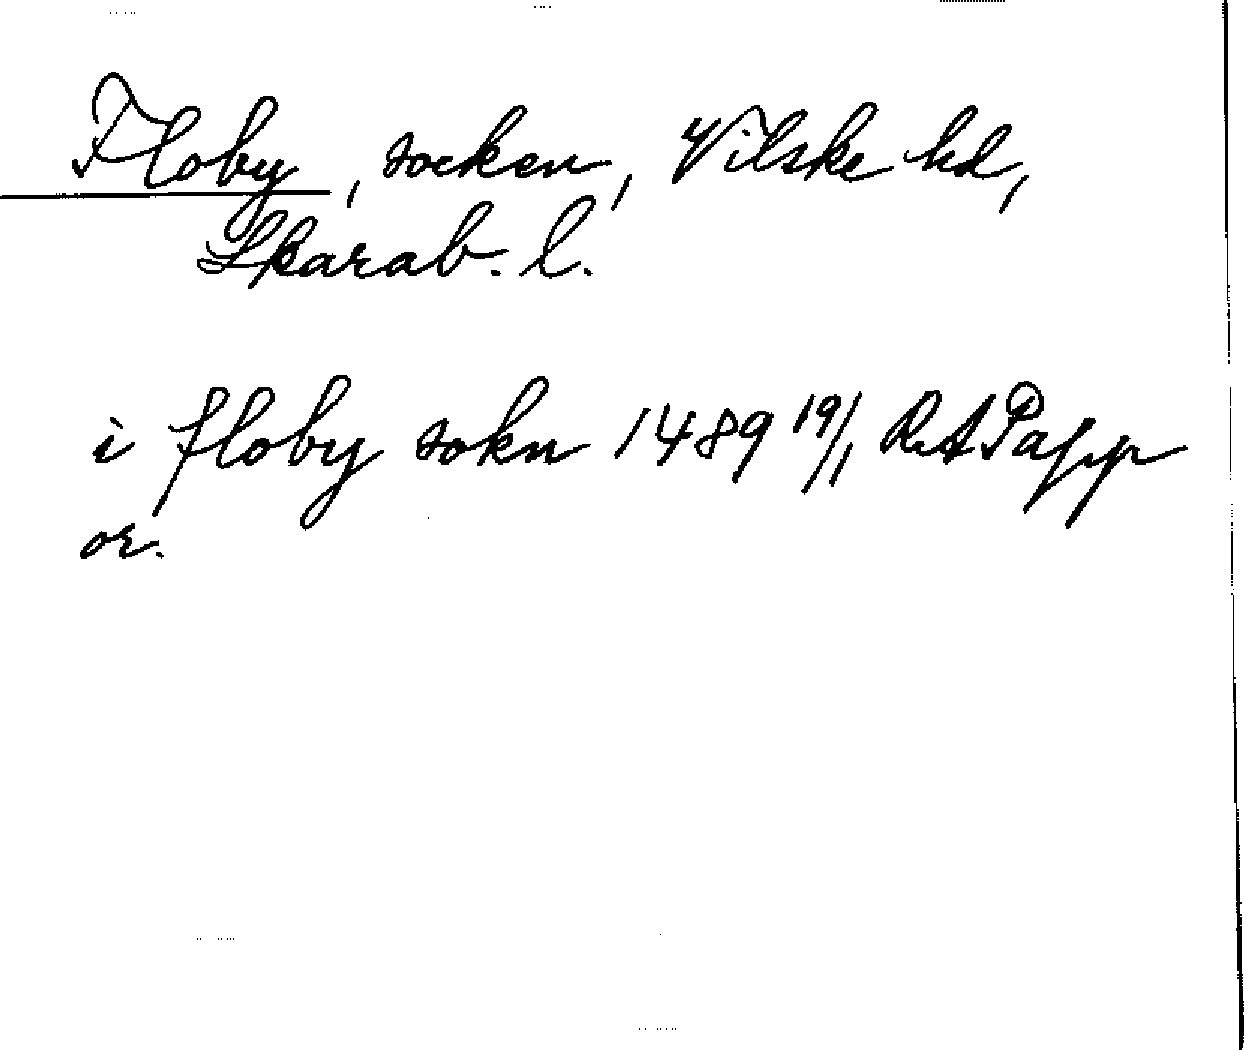 Floby, socken, Vilske hd,
Skarab. l.
i floby sokn 1489 19/1 RAPapp
or.